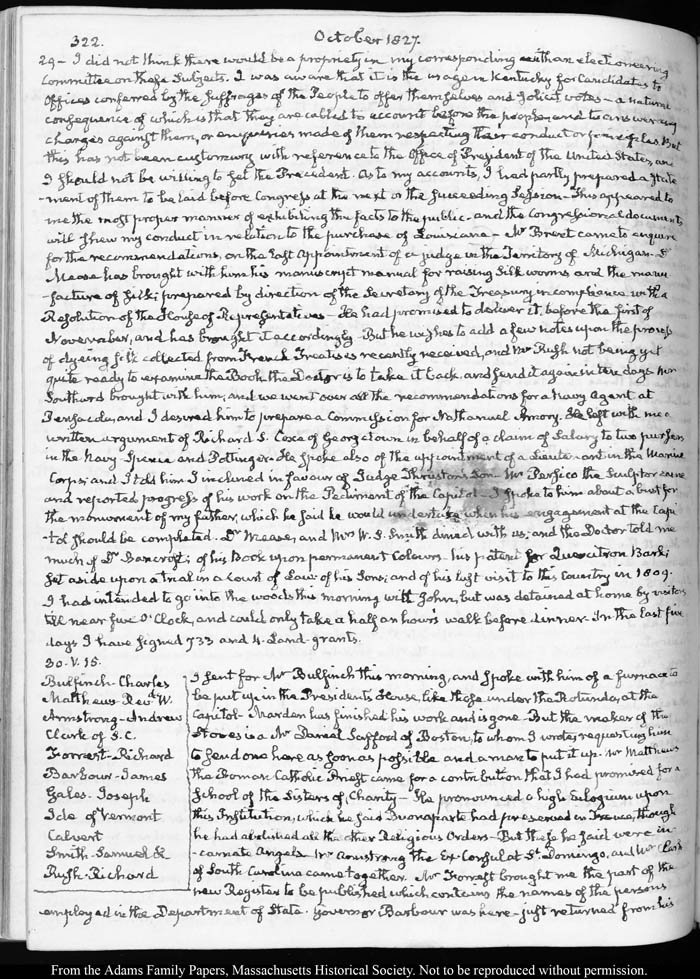 322.
October 1827.
29— I did not think there would be a propriety in my corresponding with an electioneering
Committee on these Subjects. I was aware that it is the usage in Kentucky for Candidates to
Offices conferred by the suffrages of the People to offer themselves and solicit votes— a natural
consequence of which is that they are called to account before the people and to answer any
charges against them, or enquiries made of them respecting their conduct or principles. But
this has not been customary with reference to the Office of President of the United States, and
I should not be willing to set the Precedent. As to my accounts, I had partly prepared a State
-ment of them to be laid before Congress at the next or the succeeding Session— This appeared to
me the most proper manner of exhibiting the facts to the public— and the Congressional documents
will shew my conduct in relation to the purchase of Louisiana— Mr Brent came to enquire
for the recommendations, on the last Appointment of a judge in the Territory of Michigan. Dr
Mease has brought with him his manuscript manual for raising Silk worms and the manu
-facture of Silk; prepared by direction of the Secretary of the Treasury in compliance with a
Resolution of the House of Representatives— He had promised to deliver it, before the first of
November, and has brought it accordingly— But he wishes to add a few notes upon the process
of dyeing silk collected from French Treatises recently received, and Mr Rush not being yet
quite ready to examine the Book the Doctor is to take it back and send it again in ten days. Mr
Southard brought with him, and we went over all the recommendations for a Navy Agent at
Pensacola, and I desired him to prepare a Commission for Nathaniel Amory. He left with me a
written argument of Richard S. Coxe of Georgetown in behalf of a claim of Salary to two pursers
in the Navy Spence and Pottinger. He spoke also of the appointment of a Lieutenant in the Marine
Corps; and I told him I inclined in favour of Judge Thruston's Son— Mr Persico the Sculptor came
and reported progress of his work on the Pediment of the Capitol— I spoke to him about a bust for
the monument of my father, which he said he would undertake when his engagement at the Capi
-tol should be completed. Dr Mease, and Mr W. S. Smith dined with us; and the Doctor told me
much of Dr Bancroft; of his Book upon permanent Colours— his patent for Quercitron Bark;
set aside upon a trial in a Court of Law; of his Sons; and of his last visit to this Country in 1809.
I had intended to go into the woods this morning with John, but was detained at home by visitors
till near five O'Clock, and could only take a half an hour's walk before dinner. In the last five
days I have signed 733 and 4. Land-grants.
30. V. 15.
Bulfinch— Charles
Matthews— Revd W.
Armstrong— Andrew
Clark of S. C.
Forrest— Richard
Barbour— James
Gales— Joseph
Ide of Vermont
Calvert
Smith— Samuel H.
Rush— Richard
I sent for Mr Bulfinch this morning, and spoke with him of a furnace to
be put up in the President's House, like those under the Rotunda, at the
Capitol— Marden has finished his work and is gone— But the maker of the
Stoves is a Mr Daniel Safford of Boston, to whom I wrote, requesting him
to send one here as soon as possible and a man to put it up. Mr Matthews
the Roman Catholic Priest came for a contribution that I had promised for a
School of the Sisters of Charity— He pronounced a high Eulogium upon
this Institution, which he said Buonaparte had preserved in France, though
he had abolished all the other Religious Orders— But these he said were in-
-carnate Angels. Mr Armstrong the Ex-Consul at St Domingo, and Mr Clark
of South Carolina came together. Mr Forrest brought me the part of the
new Register to be published which contains the names of the persons
employed in the Department of State. Governor Barbour was here— just returned from his
From the Adams Family Papers, Massachusetts Historical Society. Not to be reproduced without permission.